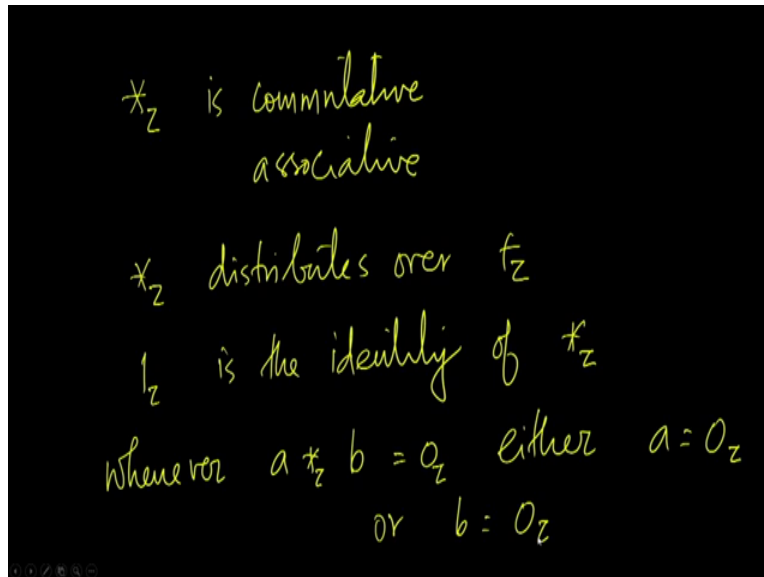 *z is commutative
associative
*z distributes over +z
1z is the identity of *z
whenever a *z b = 0z either a = 0z
or b = 0z